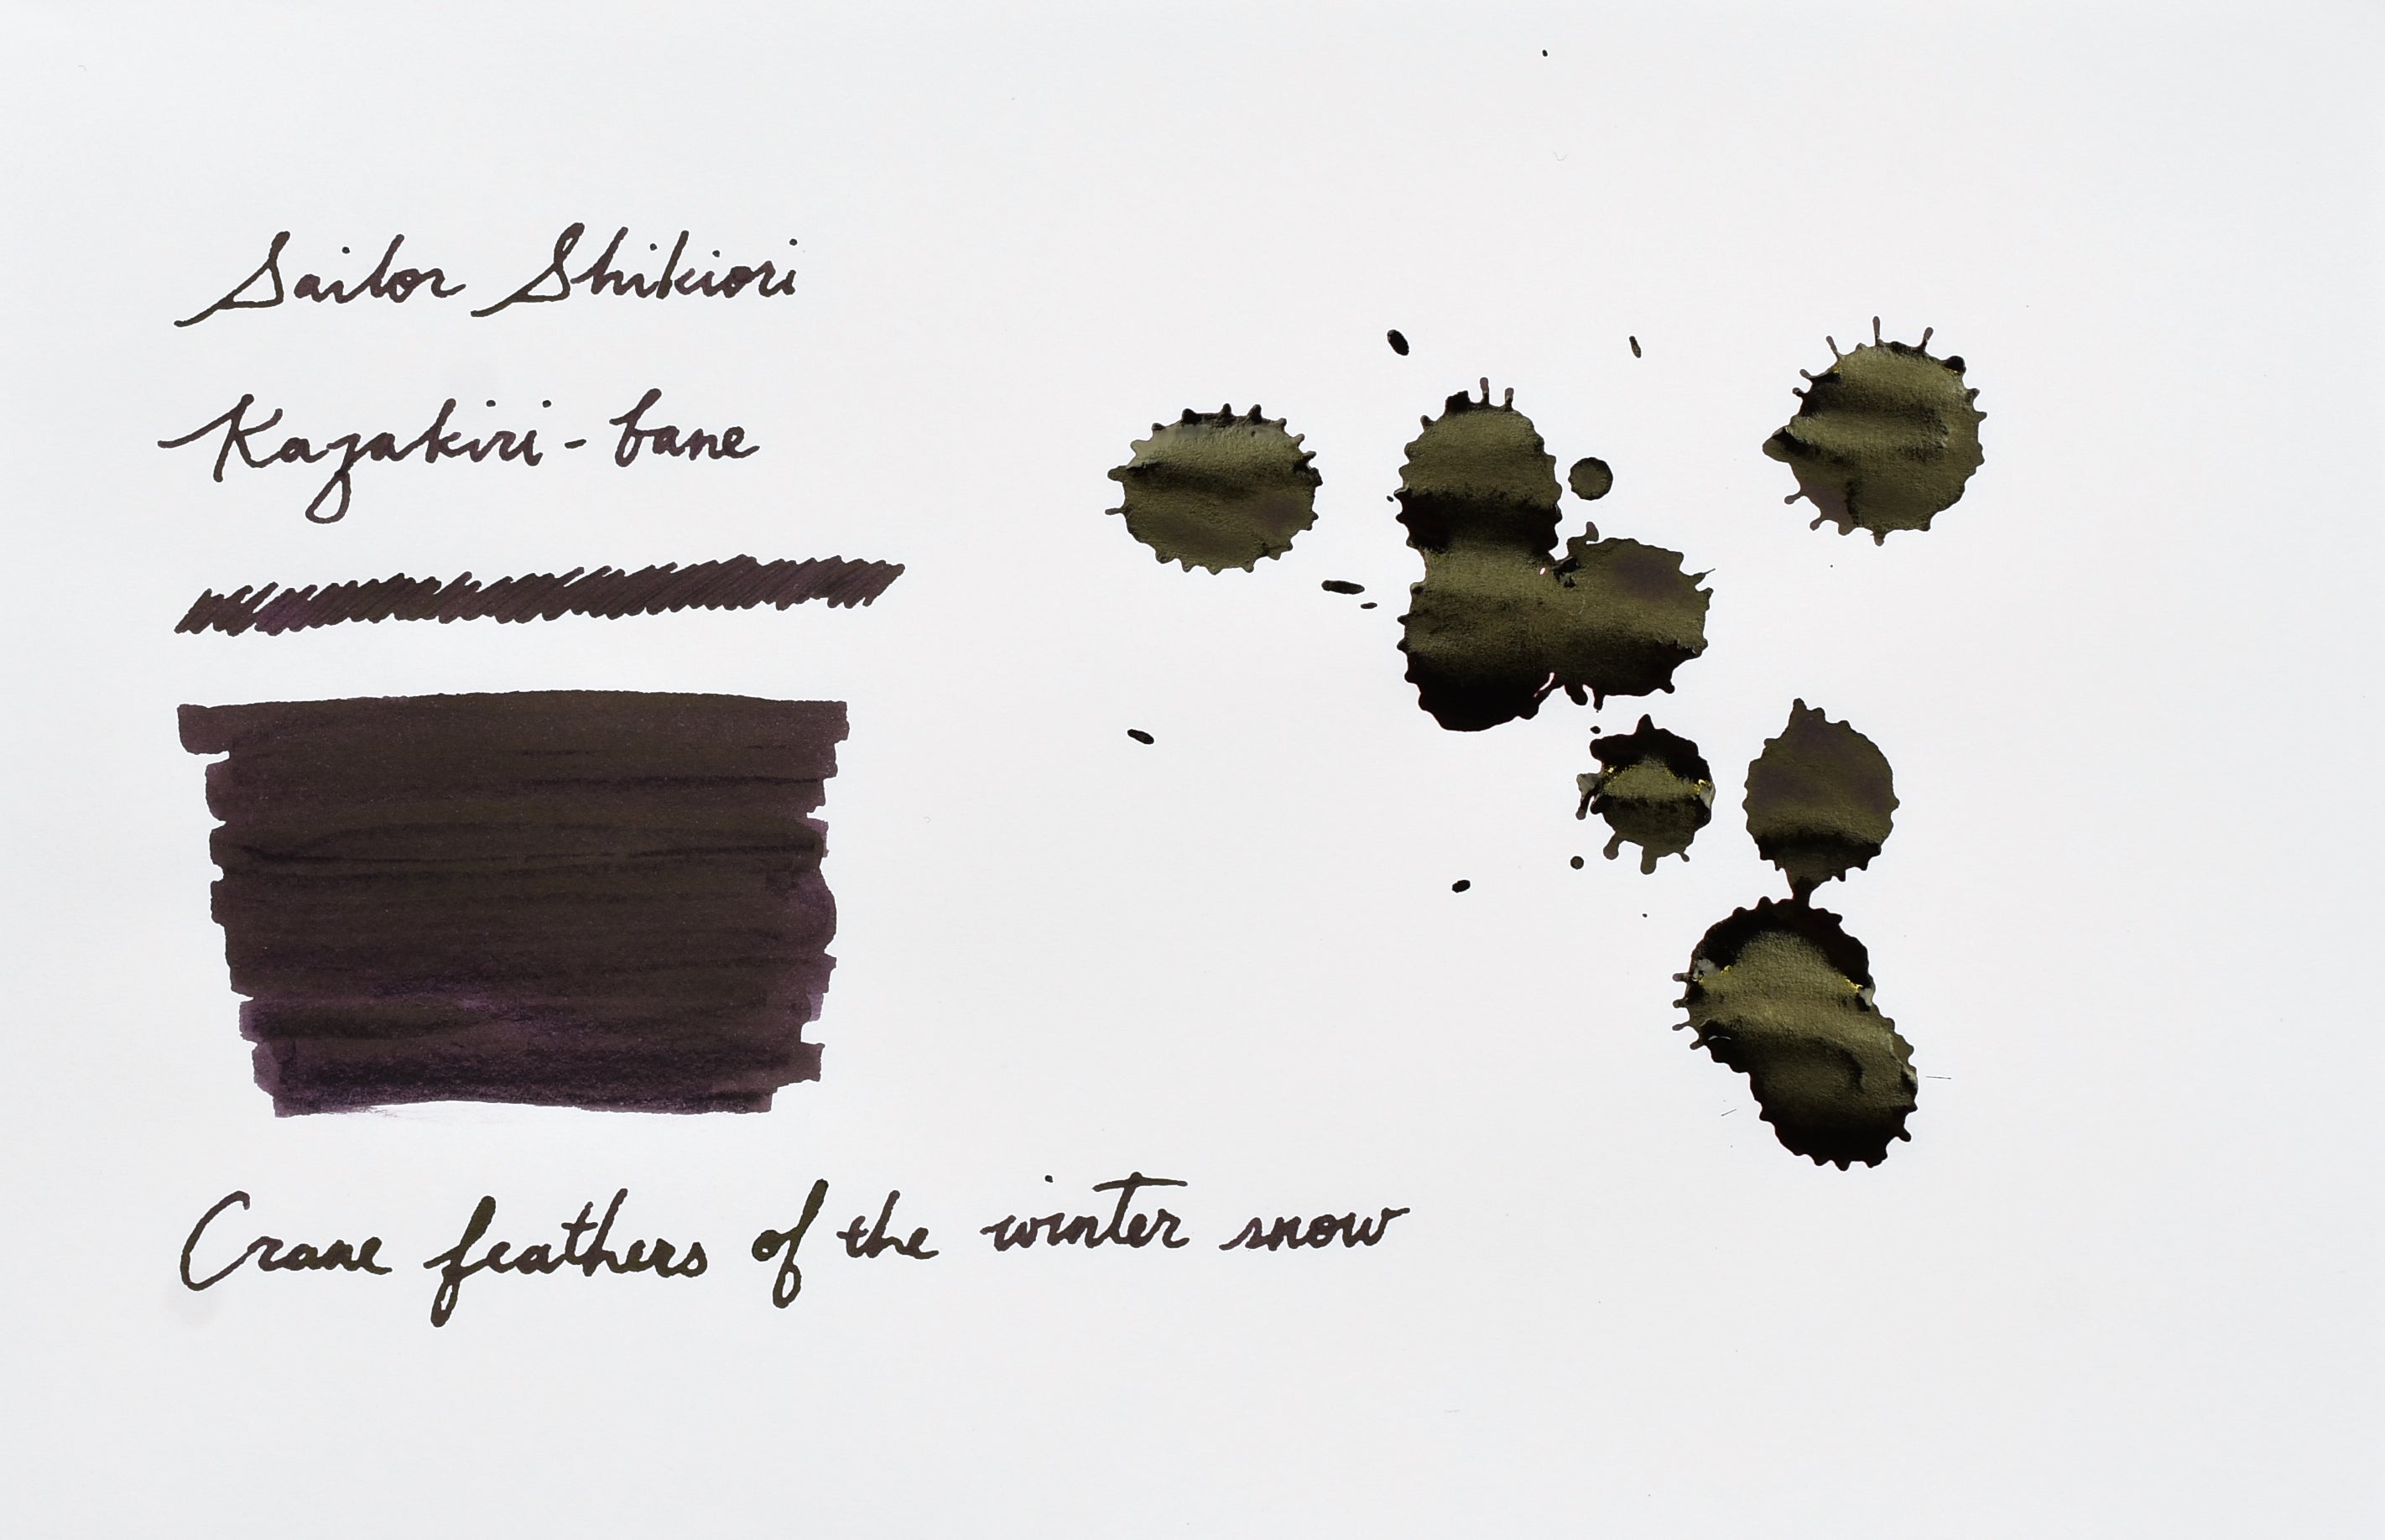 Sailor Shikiori
Kazakiri-bane
Crane feathers of the winter snow